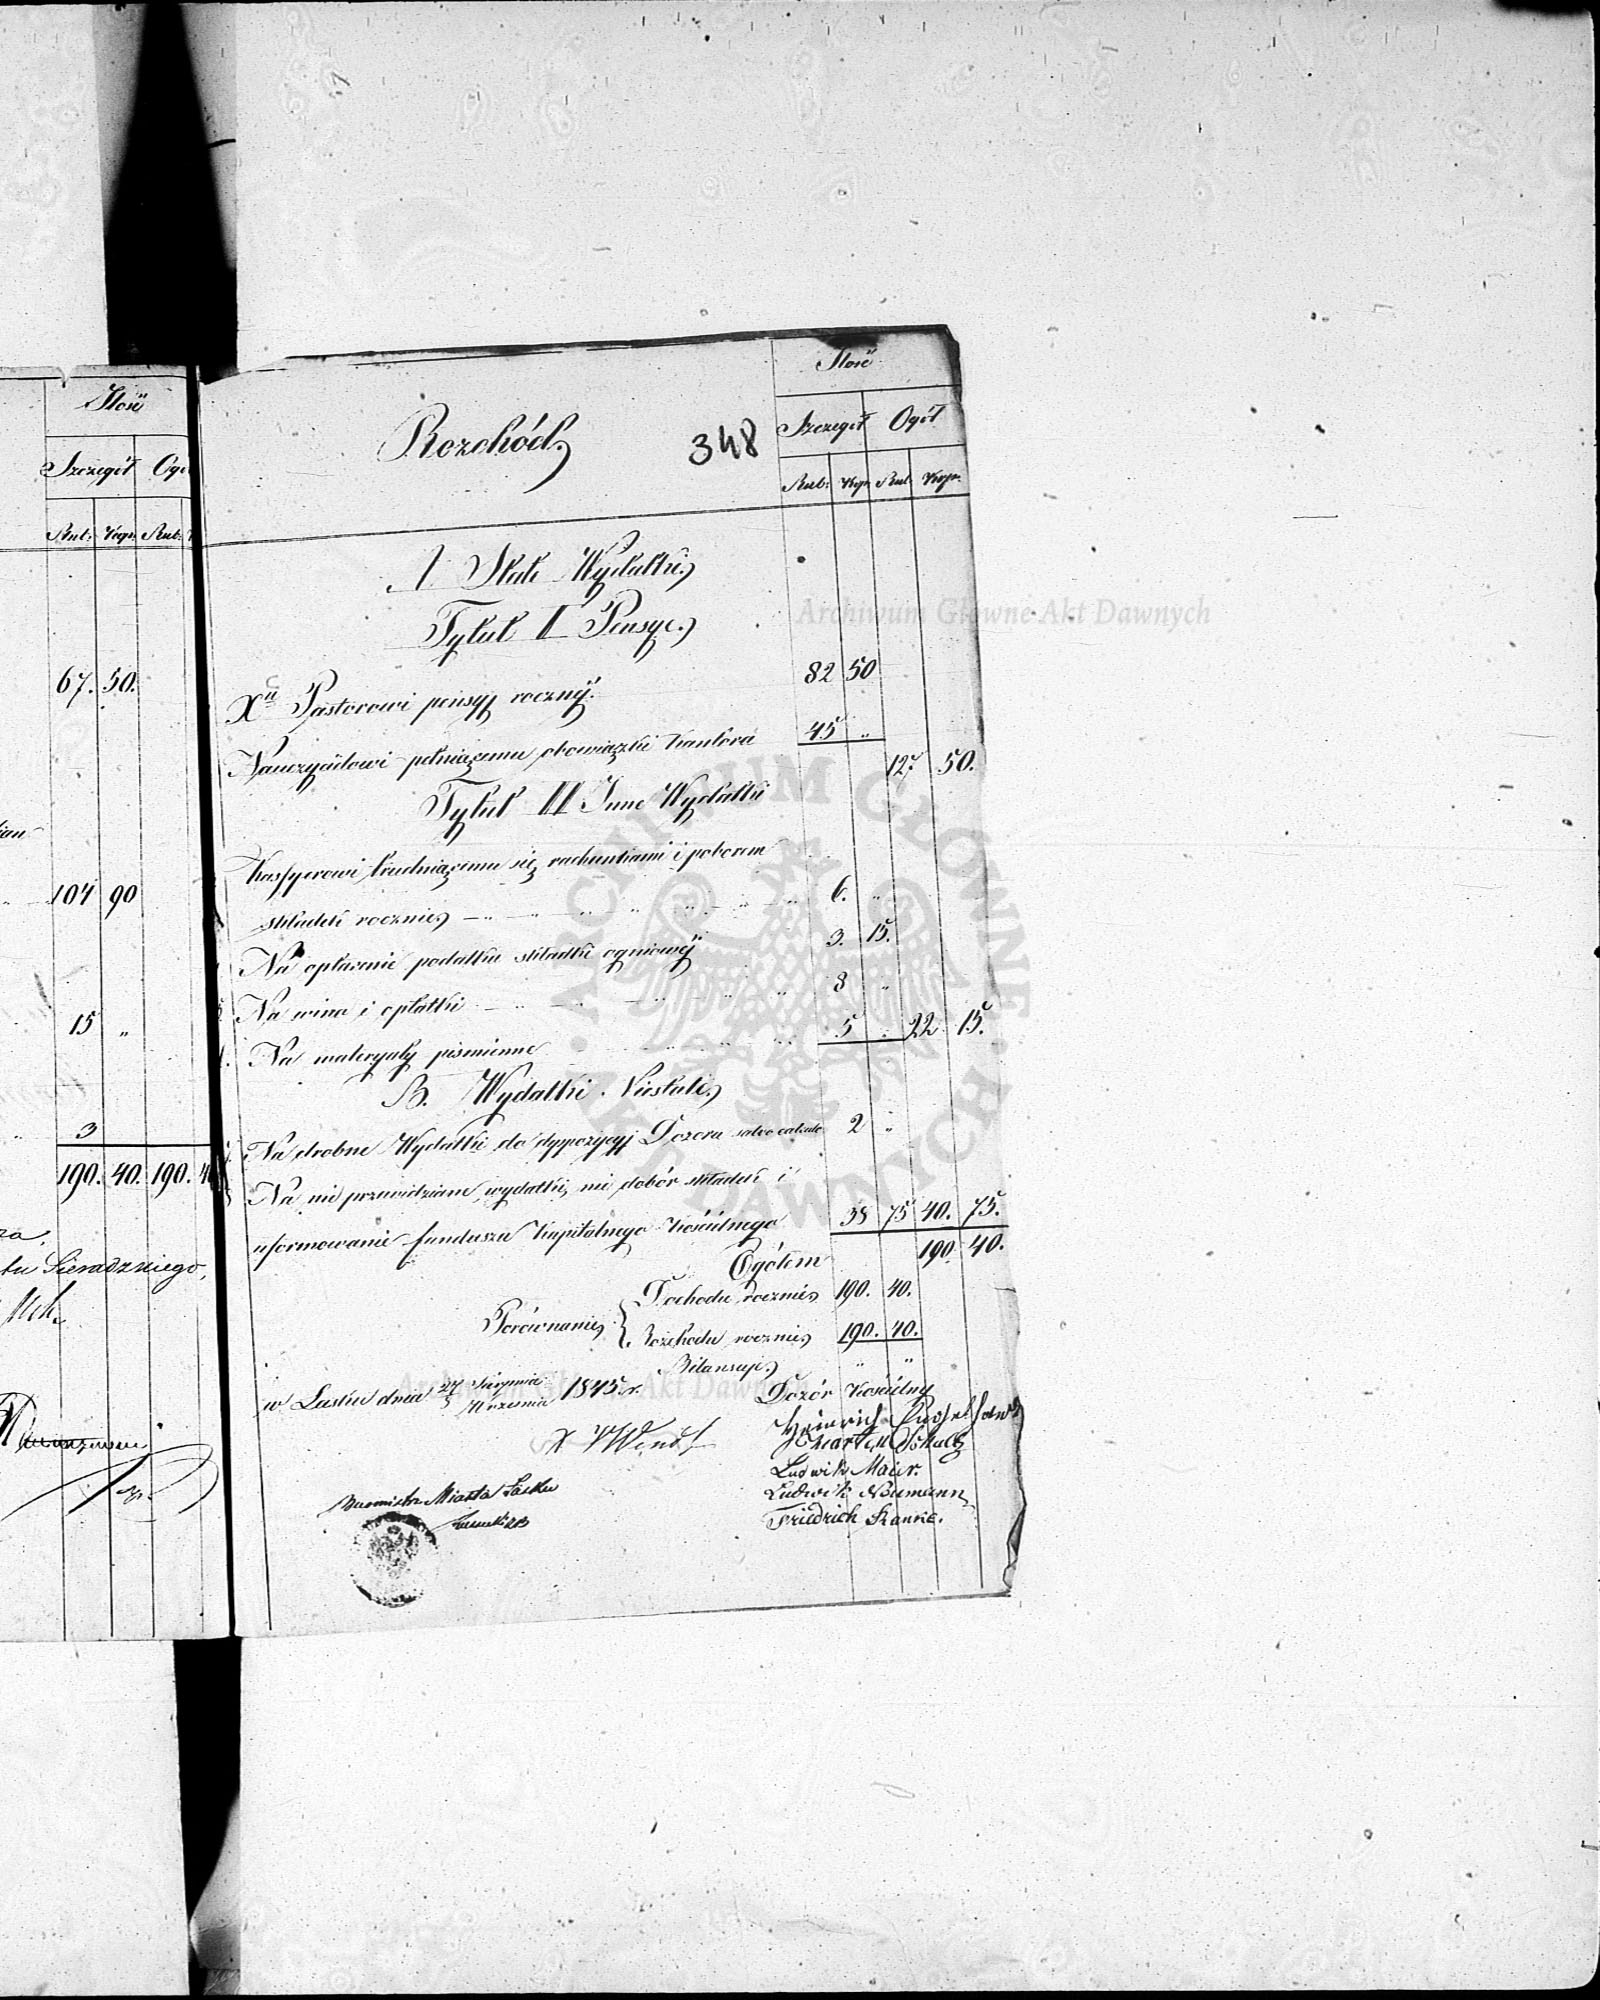 Ilość
Szczegół Ogó
Rub: Kop. Rub:
67. 50.
104 90
15 „
3
190. 40. 190. 4
tu Sieradzkiego,
Rozchód.
348
Ilość
Szczegół Ogół
Rub: Kop. Rub. Kop.
A Stałe Wydatki.
Tytuł I Pensye.
Xu Pastorowi pensyi rocznÿ. 82 50
Nauczycielowi pełniącemu obowiązki Kantora 45 „ 127. 50.
Tytuł II Inne Wydatki
Kassyerowi trudniącemu się rachunkami i poborem
składek rocznie 6. „
Na opłacenie podatku składki ogniowéj 3. 15.
Na wino i opłatki 8 „
Na materyały piśmienne 5 „ 22 15.
B. Wydatki Niestałe
Na drobne Wydatki do dyspozycyi Dozoru salvo calculo 2 „
Na nie przewidziane wydatki, nie dobór składek i
uformowanie funduszu Kapitalnego Kościelnego 38 75 40. 75.
Ogółem 190 40.
Porównanie { Dochodu rocznie 190. 40.
Rozchodu rocznie 190. 40.
Bilansuje „ „
w Łasku dnia 27 Sierpnia 1845 r.
Września
Dozór Kościelny
Ludwik Maier.
Ludwik Neumann
Friedrich
Burmistrz Miasta Łasku
Archiwum Główne Akt Dawnych
ARCHIWUM GŁÓWNE · AKT DAWNYCH ·
Archiwum Główne Akt Dawnych